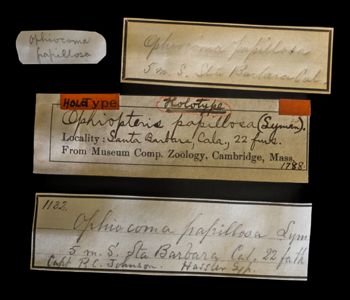 Ophiocoma
papillosa
Ophiocoma papillosa
5 m. S. Sta Barbara Cal.
HOLOType. Holotype
Ophiopteris papillosa (Lyman).
Locality: Santa Barbara, Cala, 22 fms.
From Museum Comp. Zoölogy, Cambridge, Mass.
1788
1132.
Ophiocoma papillosa Lym
5 m. S. Sta Barbara Cal. 22 fath
Capt P.C. Johnson. Hassler Exp.